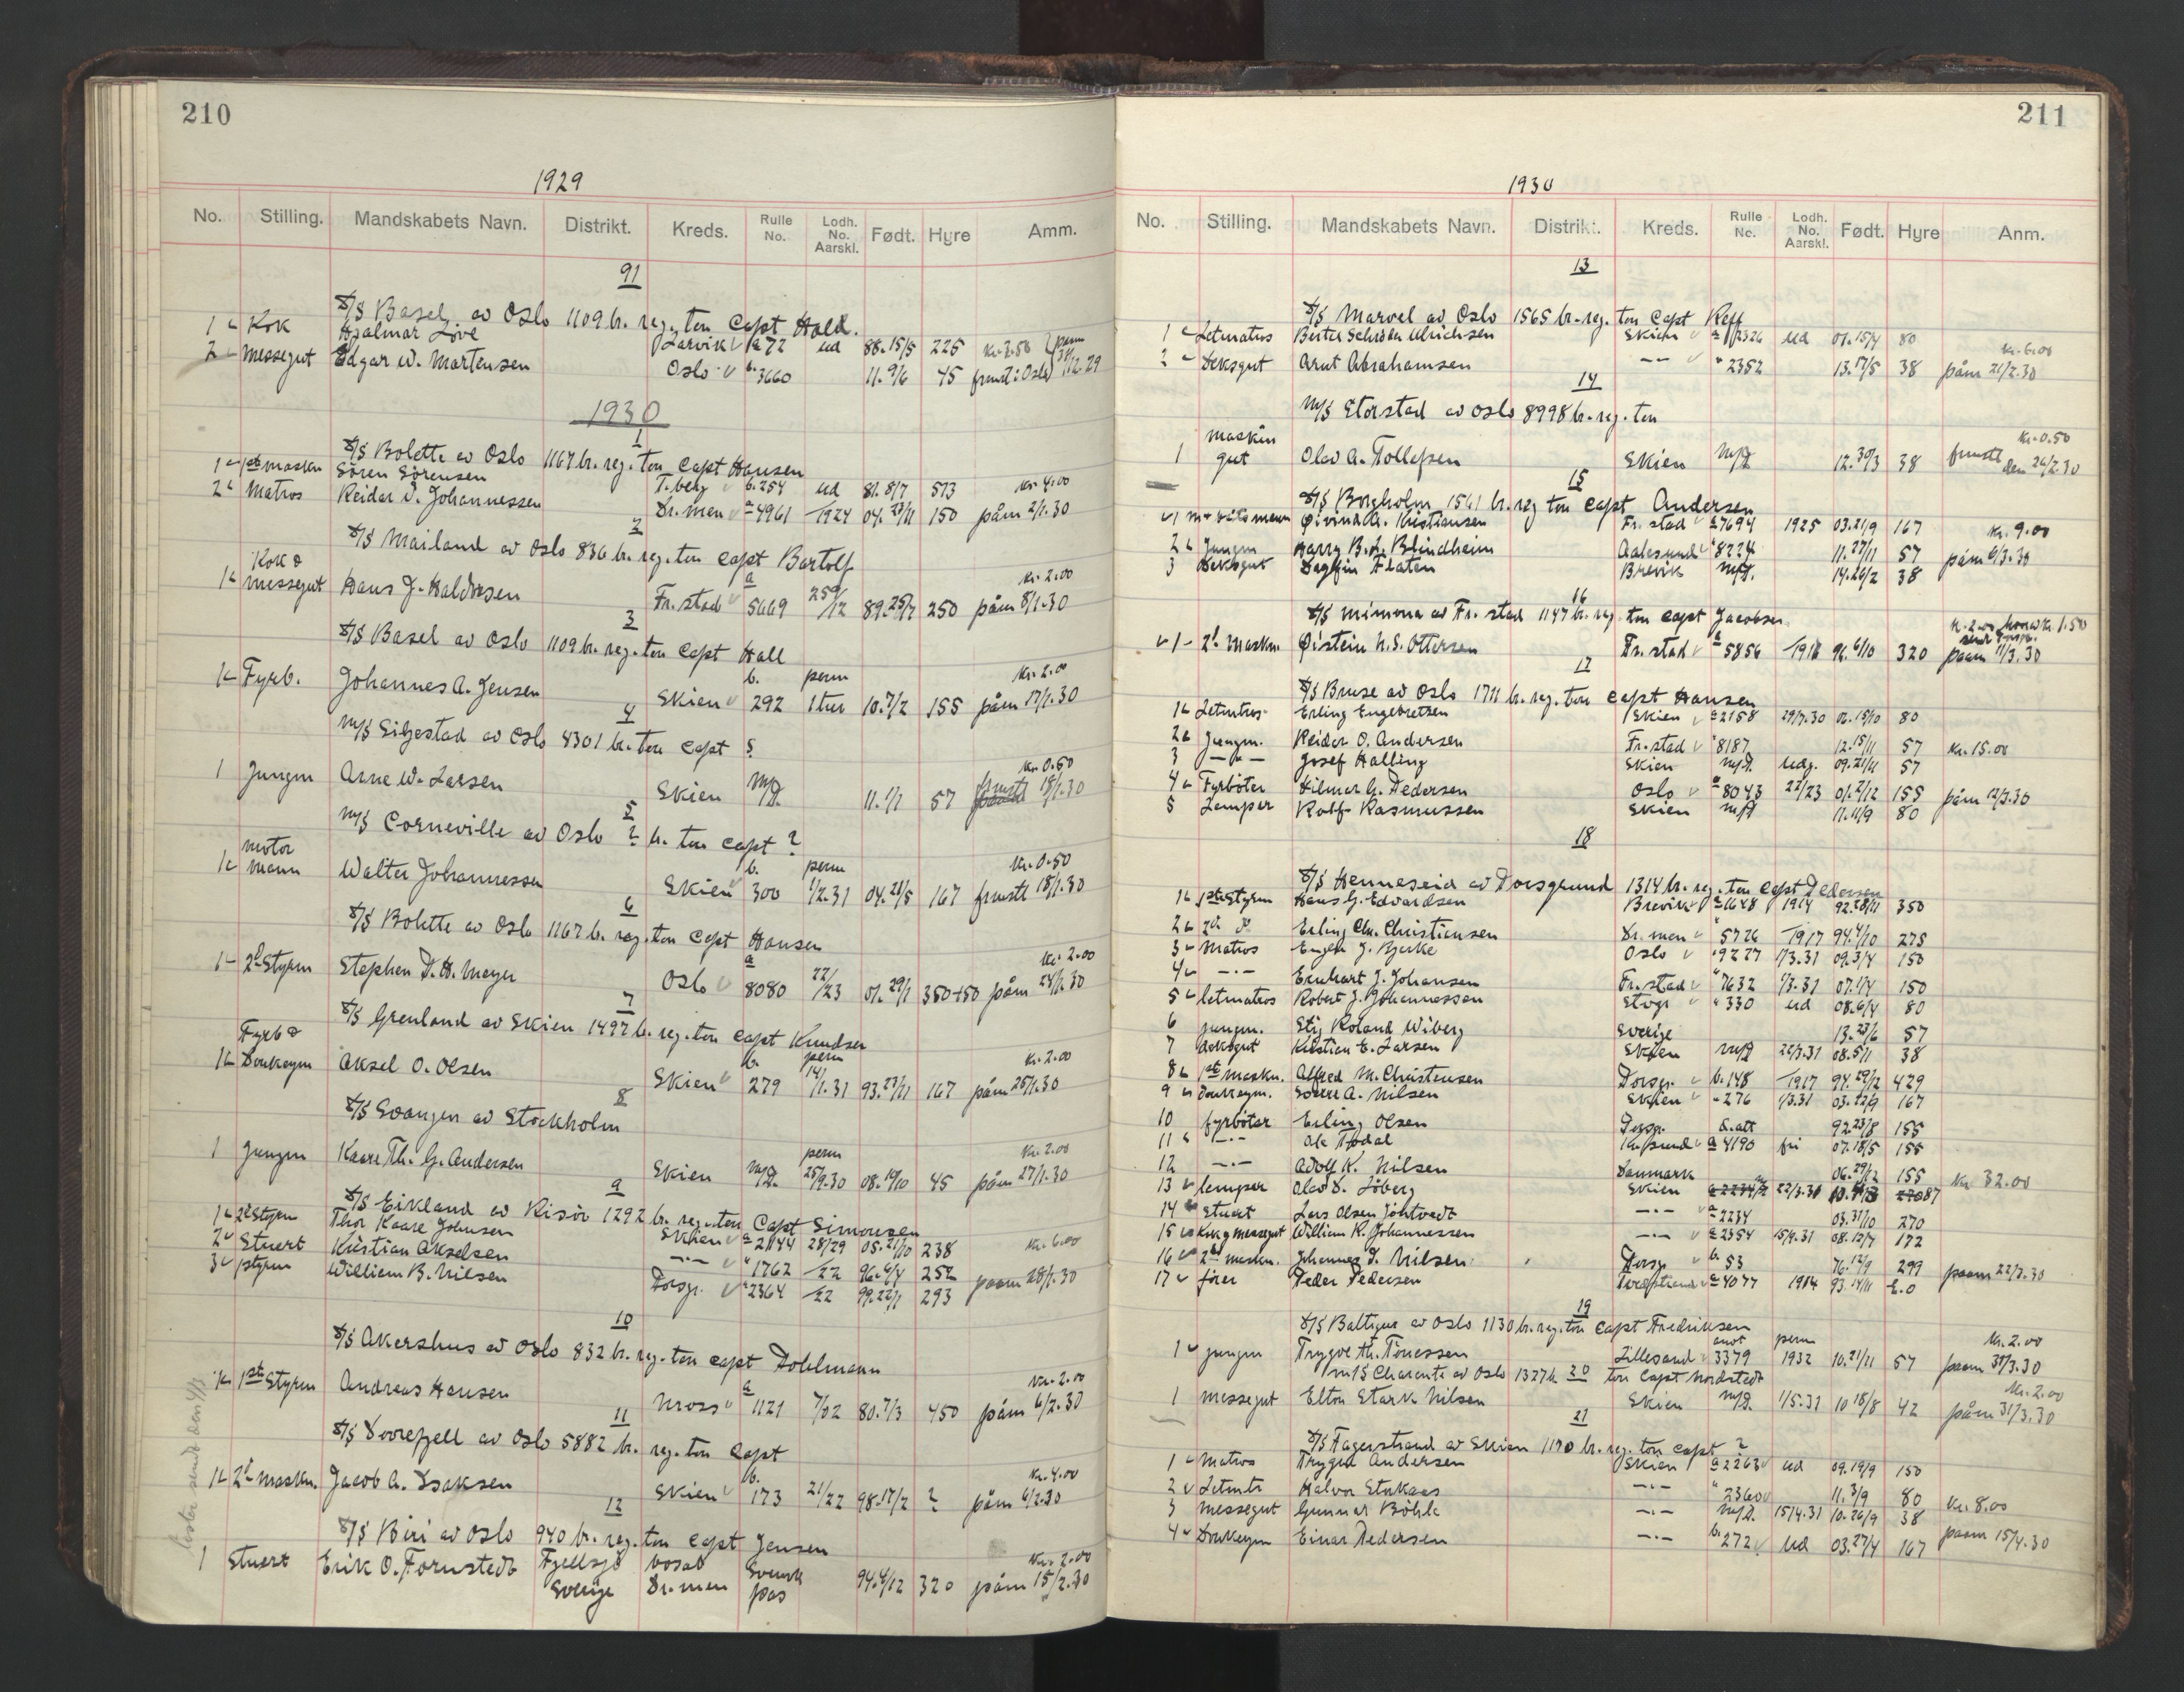 210
1929
No. Stilling. Mandskabets Navn. Distrikt. Kreds. Rulle No. Lodh. No. Aarskl. Født. Hyre Amm.
91
S/S Basel av Oslo 1109 br. reg. ton Capt Hall.
1 Kok Hjalmar Löve Larvik a 72 ud 88.15/5 225 kr. 3.50
2 Messegut Edgar W. Martensen Oslo b. 3660 11.9/6 45 frmst i Oslo 12.29
1930
1
S/S Bolette av Oslo 1167 br. reg. ton Capt Hansen
1 1ste maskn Sören Sörensen T.berg b. 254 ud 81.8/7 513 kr. 4.00
2 Matros Reidar D. Johannessen Dr.men a 4961 1924 04.23/11 150 påm 2/1.30
2
S/S Mailand av Oslo 836 br. reg. ton Capt Bartolf
Kok &
1 messegut Hans J. Haldorsen Fr.stad a 5669 259/12 89.25/7 250 kr. 2.00 påm 8/1.30
3
S/S Basel av Oslo 1109 br. reg. ton Capt Hall
1 Fyrb. Johannes A. Jensen Skien b. 292 perm 1 tur 10.7/2 155 kr. 2.00 påm 17/1.30
4
M/S Siljestad av Oslo 4301 br. ton Capt ?
1 Jungm Arne W. Larsen Skien m/p. 11.1/1 57 kr. 0.50 frmstl 18/1.30
5
M/S Corneville av Oslo ? br. ton Capt ?
motor
1 mann Walter Johannessen Skien b. 300 perm 1/2.31 04.21/5 167 kr. 0.50 frmstl 18/1.30
6
S/S Bolette av Oslo 1167 br. reg. ton Capt Hansen
1 2d Styrm Stephen D. H. Meyer Oslo a 8080 22/23 01.29/1 350+50 kr. 2.00 påm 24/1.30
7
S/S Grenland av Skien 1497 br. reg. ton Capt Knudsen
Fyrb &
1 Donkeym Aksel O. Olsen Skien b. 279 perm 14/1.31 93.23/11 167 kr. 2.00 påm 25/1.30
8
S/S Svangen av Stockholm
1 Jungm Kaare Th. G. Andersen Skien m/p. perm 25/9.30 08.19/10 45 kr. 2.00 påm 27/1.30
9
S/S Eikland av Risör 1292 br. reg. ton Capt Simonsen
1 2d Styrm Thor Kaare Johnsen Skien a 2144 28/29 05.21/10 238 kr. 6.00
2 Stuert Kristian Akselsen —.— " 1762 22 96.4/4 252
3 1styrm William B. Nilsen Porsgr. " 2364 22 99.22/1 293 paam 28/1.30
10
S/S Akershus av Oslo 832 br. reg. ton Capt Dohlmann
1 1ste Styrm Andreas Hansen Moss a 1121 7/02 80.7/3 450 kr. 2.00 påm 6/2.30
11
S/S Dovrefjell av Oslo 5882 br. reg. ton Capt
1 2d maskn. Jacob A. Isaksen Skien b. 173 21/22 98.17/2 ? kr. 4.00 påm 6/2.30
12
S/S Biri av Oslo 940 br. reg. ton Capt Jensen
1 Stuert Erik O. Fornstedt Fjellsjö bosat Svensk 94.4/12 320 kr. 2.00 påm 15/2.30
Sverige Dr.men pas
211
1930
No. Stilling. Mandskabets Navn. Distrikt. Kreds. Rulle No. Lodh. No. Aarskl. Født. Hyre Anm.
13
S/S Marvel av Oslo 1565 br. reg. ton Capt Reff
1 Letmatros Birter Schröder Ulrichsen Skien a 2326 ud 01.15/4 80
2 Deksgut Arnt Abrahamsen —.— " 2352 13.17/5 38 kr. 6.00 påm 21/2.30
14
M/S Storstad av Oslo 8998 br. reg. ton
maskin
1 gut Olav A. Tollefsen Skien m/p 12.30/3 38 kr. 0.50 frmstl den 26/2.30
15
S/S Borgholm 1561 br. reg ton Capt Andersen
1 Øivind A. Kristiansen Fr.stad a 7694 1925 03.21/9 167 kr. 9.00
2 Jungm Harry B. L. Blindheim Aalesund " 8224 11.27/11 57 påm 6/3.30
3 Deksgut Dagfin Flaten Brevik m/p. 14.26/2 38
16
S/S Mimona av Fr.stad 1147 br. reg. ton Capt Jacobsen
1 2d Maskn. Øistein N. S. Ottersen Fr.stad a 5856 1918 96.6/10 320 kr. 2.00 paam 11/3.30
17
S/S Bruse av Oslo 1711 br. reg. ton Capt Hansen
1 Letmtros Erling Engebretsen Skien a 2158 29/7.30 06.15/10 80
2 Jungm. Reidar O. Andersen Fr.stad " 8187 12.15/11 57 kr. 15.00
3 —"— Josef Halling Skien m/p. udg. 09.21/11 57
4 Fyrböter Hilmar G. Pedersen Oslo a 8043 22/23 01.2/12 155 påm 12/3.30
5 Lemper Rolf Rasmussen Skien m/p 11.11/9 80
18
S/S Henneseid av Porsgrund 1314 br. reg. ton Capt Pedersen
1 1ste Styrm Hans G. Edvardsen Brevik a 1648 1914 92.28/11 350
2 2d d Erling Chr. Christiansen Dr.men " 5726 1917 94.4/10 275
3 Matros Engh J. Bjerke Oslo " 9227 1/3.31 09.3/4 150
4 —.— Einhart J. Johansen Fr.stad " 7632 1/3.31 07.1/4 150
5 letmatros Robert J. Johannessen " 330 ud 08.6/4 80
6 jungm. Stig Roland Wiberg Sverige 13.23/6 57
7 deksgut Kristian E. Larsen Skien m/p 20/3.31 08.5/11 38
8 1ste maskn. Alfred M. Christensen Porsgr. b. 148 1917 94.29/12 429
9 Donkeym. Sverre A. Nilsen Skien " 276 1/3.31 03.22/9 167
10 fyrböter Erling Olsen Porsgr. d.att 92.23/8 155
11 —.— Ole Tødal Kr.sund a 4190 fri 07.18/5 155
12 —.— Adolf K. Nilsen Danmark 06.29/12 155 kr. 32.00
13 lemper Olav D. Löberg Skien 22/3.31 87
14 Stuert Lars Olsen Jöntvedt —.— a 2234 03.31/10 270
15 Kok g messegut William R. Johannessen —.— a 2354 15/9.31 08.12/7 172
16 2d maskn. Johannes D. Nilsen Porsgr. b. 53 76.12/9 299 paam 22/3.30
17 förer Peder Pedersen Tvedestrand a 4077 1914 93.14/11 E.O
19
S/S Baltique av Oslo 1130 br. reg. ton Capt Fredriksen
1 jungm Trygve Th. Tönessen Lillesand anot 3379 perm 1932 10.21/11 57 kr. 2.00 paam 31/3.30
20
M/S Charente av Oslo 1327 br. ton Capt Nordstedt
1 messegut Elton Stark Nilsen Skien m/p. 1/5.31 10 18/8 42 kr. 2.00 påm 31/3.30
21
S/S Fagerstrand av Skien 1170 br. reg. ton Capt ?
1 Matros Trygve Andersen Skien a 2263 ud 09.19/9 150
2 Letmtr Halvor Stokaas —.— " 2360 11.3/9 80 kr. 8.00
3 messegut Gunnar Böhle —.— m/p. 15/4.31 10.26/9 38
4 Donkeym Einar Pedersen —.— b. 272 ud 03.27/4 167 paam 15/4.30